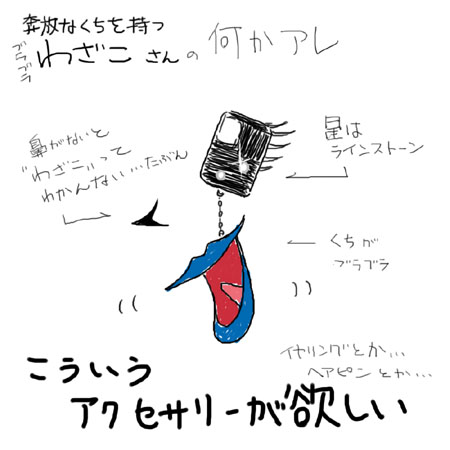 奔放なくちを持つ
ブラブラ
わざこさんの何かアレ
鼻がないと
"わざこ"って
わかんない…たぶん
星は
ラインストーン
くちが
ブラブラ
イヤリングとか…
ヘアピンとか…
こういう
アクセサリーが欲しい